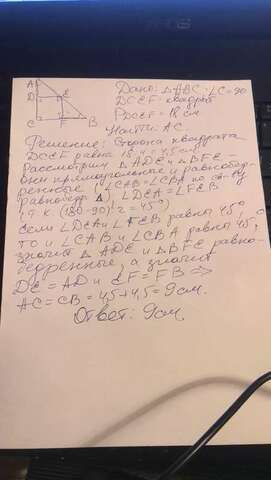 A
D E
C F B
Дано: △ABC: ∠C=90
DCEF - квадрат
PDCEF = 18 см
Найти: AC.
Решение: Сторона квадрата
DCEF равна 18:4=4,5 см
Рассмотрим △ADE и △BFE -
они прямоугольные и равнобед-
ренные (∠CAB=∠CBA по св-ву
равнобедр △), ∠DEA=∠FEB
т.к. (180-90):2=45°)
если ∠DEA и ∠FEB равны 45°,
то и ∠CAB и ∠CBA равны 45°,
значит △ADE и △BFE равно-
бедренные, а значит
DE=AD и EF=FB ⇒
AC=CB=4,5+4,5=9 см.
Ответ: 9 см.